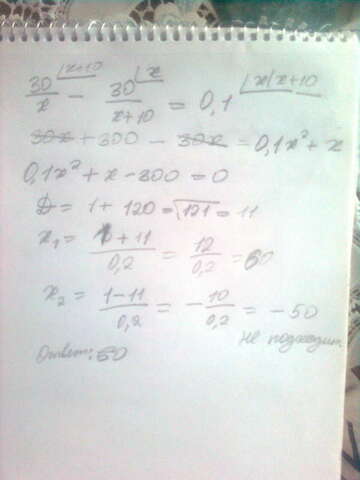 30/x ⌊x+10 − 30/(x+10) ⌊x = 0,1 ⌊x(x+10
30x + 300 − 30x = 0,1x² + x
0,1x² + x − 300 = 0
D = 1 + 120 = √121 = 11
x₁ = (1+11)/0,2 = 12/0,2 = 60
x₂ = (1−11)/0,2 = −10/0,2 = −50
не подходит
Ответ: 60